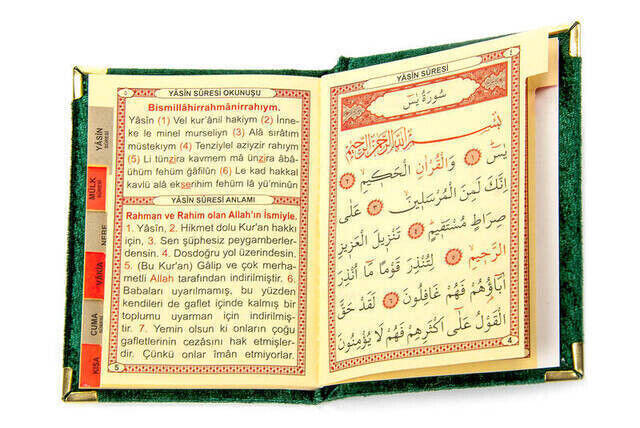 YÂSİN SÛRESİ OKUNUŞU
Bismillâhirrahmânirrahıym.
Yâsîn (1) Vel kur'ânil hakiym (2) İnne-
ke le minel murseliyn (3) Alâ sırâtım
müstekıym (4) Tenziylel aziyzir rahıym
(5) Li tünzira kavmem mâ ünzira âbâ-
ühüm fehüm gâfilûn (6) Le kad hakkal
kavlü alâ ekserihim fehüm lâ yü'minûn
YÂSİN SÛRESİ ANLAMI
Rahman ve Rahim olan Allah'ın İsmiyle.
1. Yâsîn, 2. Hikmet dolu Kur'an hakkı
için, 3. Sen şüphesiz peygamberler-
densin. 4. Dosdoğru yol üzerindesin.
5. (Bu Kur'an) Gâlip ve çok merha-
metli Allah tarafından indirilmiştir. 6.
Babaları uyarılmamış, bu yüzden
kendileri de gaflet içinde kalmış bir
toplumu uyarman için indirilmiş-
tir. 7. Yemin olsun ki onların çoğu
gafletlerinin cezasını hak etmişler-
dir. Çünkü onlar îmân etmiyorlar.
5
YÂSİN
SÛRESİ
MÜLK
SÛRESİ
NEBE
VÂKIA
CUMA
KISA
YÂSİN SÛRESİ
سُورَةُ يٰسٓ
بِسْمِ اللّٰهِ الرَّحْمٰنِ الرَّحِيمِ
يٰسٓ ﴿١﴾ وَالْقُرْاٰنِ الْحَكِيمِ ﴿٢﴾
اِنَّكَ لَمِنَ الْمُرْسَلِينَ ﴿٣﴾ عَلٰى
صِرَاطٍ مُسْتَقِيمٍ ﴿٤﴾ تَنْزِيلَ الْعَزِيزِ
الرَّحِيمِ ﴿٥﴾ لِتُنْذِرَ قَوْمًا مَٓا اُنْذِرَ
اٰبَٓاؤُ۬هُمْ فَهُمْ غَافِلُونَ ﴿٦﴾ لَقَدْ حَقَّ
الْقَوْلُ عَلٰٓى اَكْثَرِهِمْ فَهُمْ لَا يُؤْمِنُونَ
4